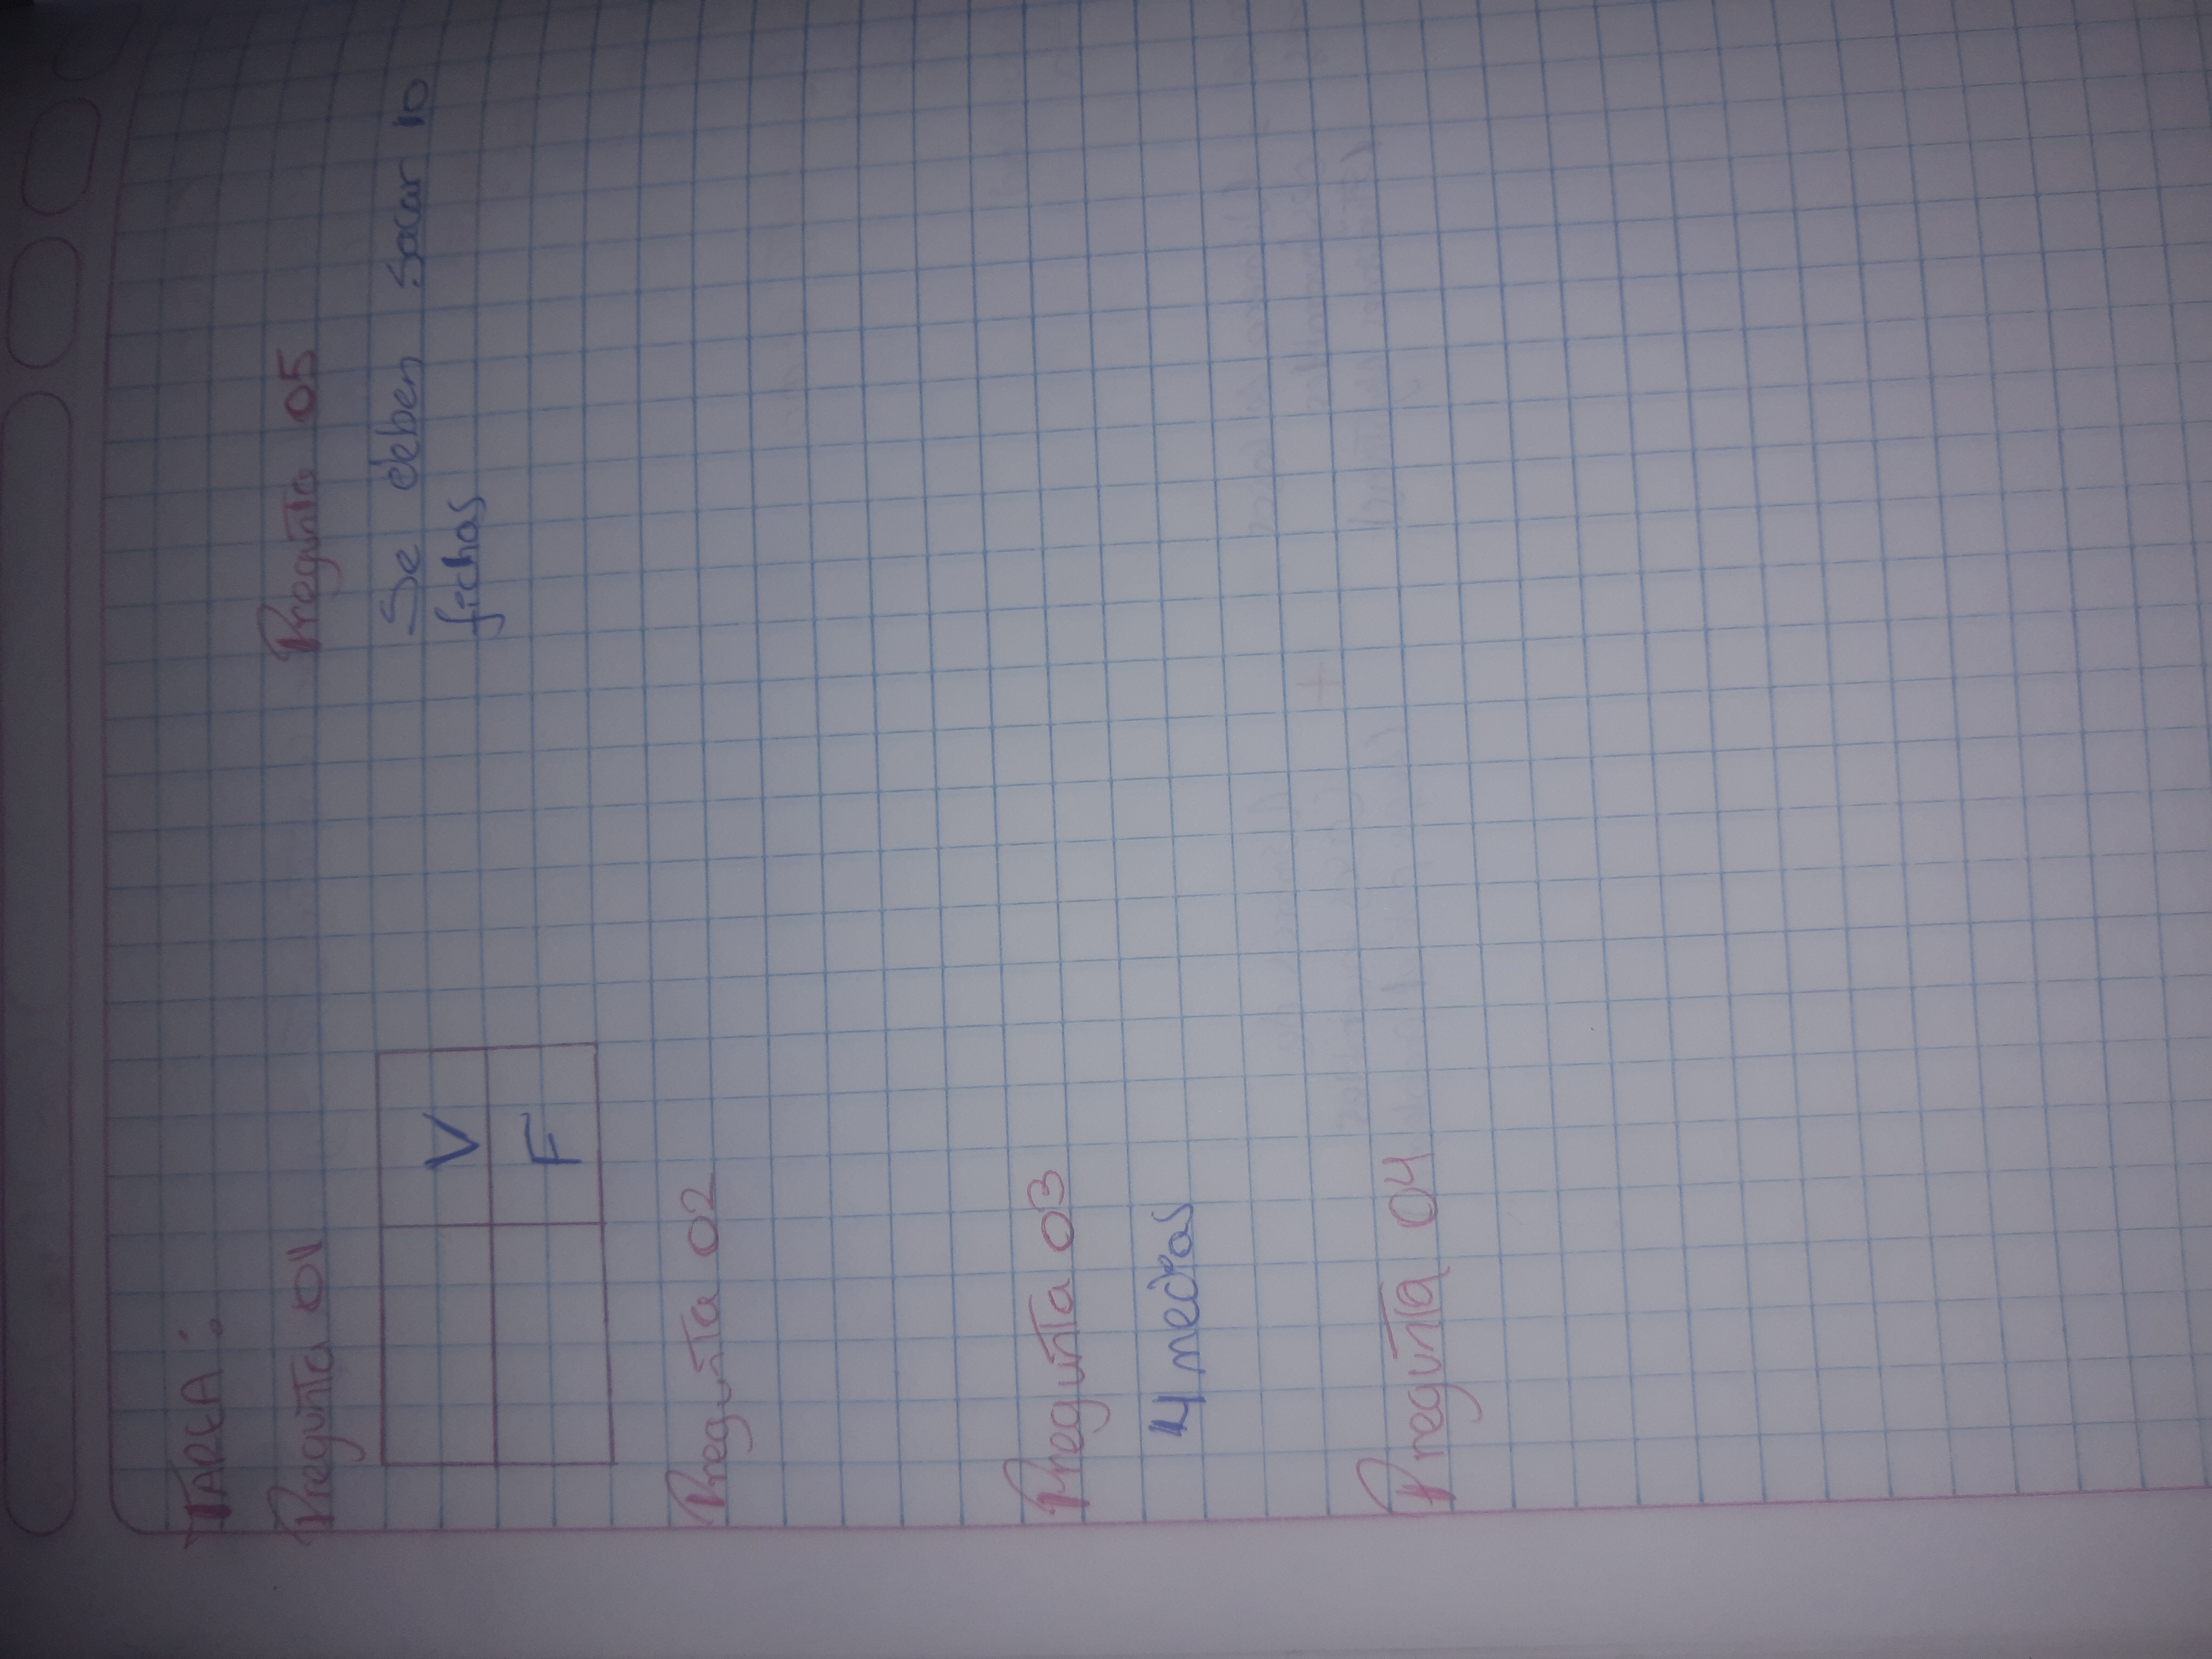 TAREA :
Pregunta 01
V
F
Pregunta 02
Pregunta 03
4 medias
Pregunta 04
Pregunta 05
Se deben sacar 10
fichas